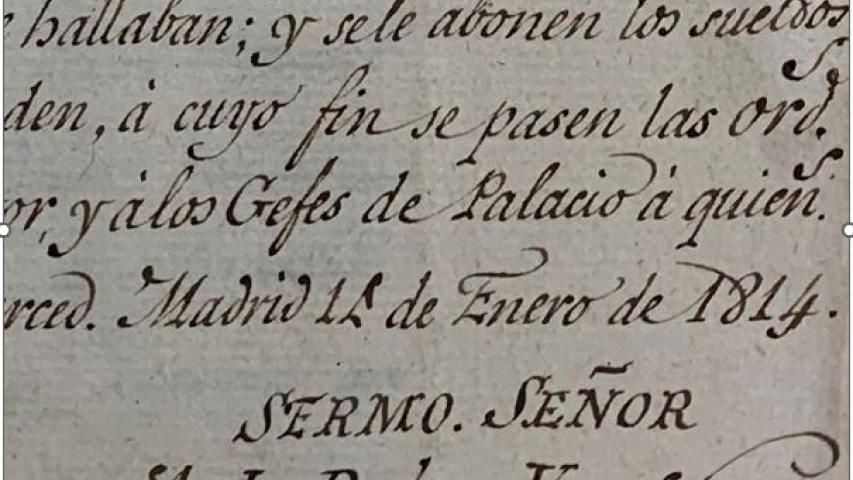 hallaban; y sele abonen los sueldos
den, á cuyo fin se pasen las ord.s
or, y álos Gefes de Palacio á quien.s
rced. Madrid de Enero de 1814.
SERMO. SEÑOR